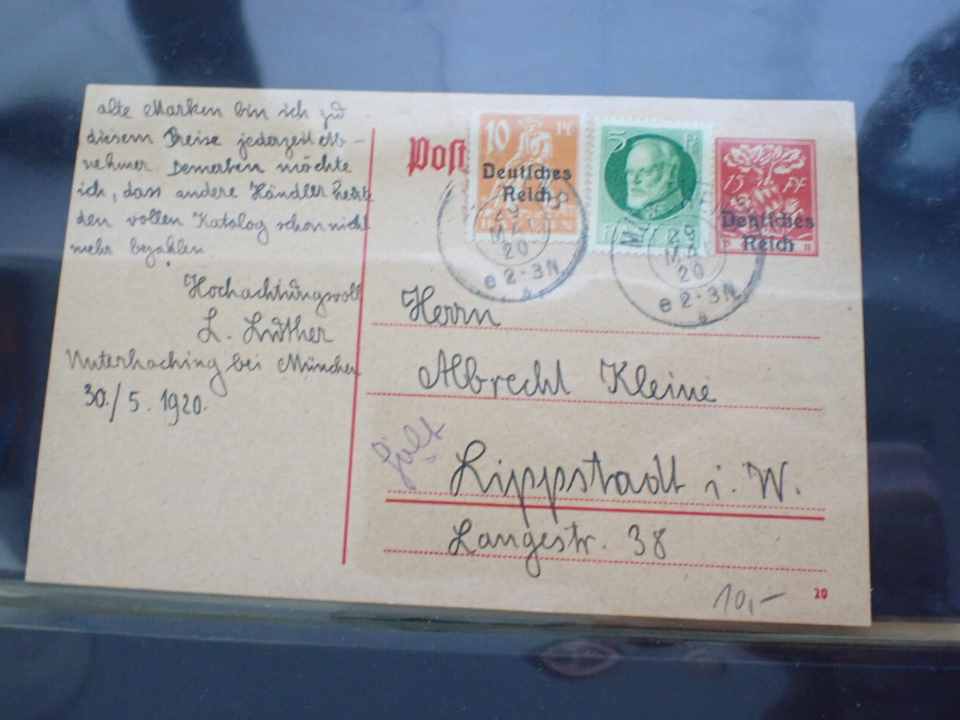 alte Marken bin ich zu
diesem Preise jederzeit Ab-
nehmer. Bemerken möchte
ich, dass andere Händler heute
den vollen Katalog schon nicht
mehr bezahlen.
Hochachtungsvoll
L. Luther
Unterhaching bei München
30./5. 1920.
Post
10 Pf
Deutsches
Reich
5
15 Pf
Deutsches
Reich
29
MAI
20
e 2-3N
29
MAI
20
e 2-3N
Herrn
Albrecht Kleine
Lippstadt i. W.
Langestr. 38
10,-
20